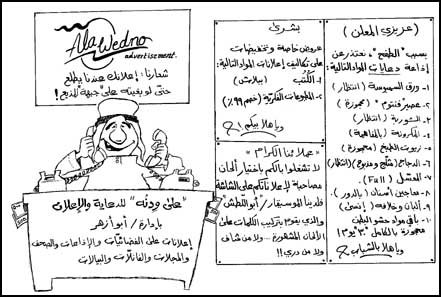 Ala Wedno
advertisement.
شعارنا: إعلانك عندنا يطلع
حتى لو بغيته على "جبهة المذيع"!
"على ودنه" للدعاية والإعلان
بإدارة/ أبو أزهر
إعلانات على الفضائيات والإذاعات والصحف
والمجلات والفانلات والبيالات
بشرى
عروض خاصة وتخفيضات
على تكاليف إعلانات المواد التالية:
١- الكُتب (ببلاش)
٢- المطبوعات الفكرية (خصم ٩٩٪)
ويا هلا بكم
"عملائنا الكرام"
لا تشغلوا بالكم باختيار ألحان
مصاحبة لإعلاناتكم على الشاشة
فلدينا الموسيقار/ أبو الطقش
والذي يقوم بتركيب الكلمات على
الألحان المشهورة... ولا من شاف
ولا من دري!!
(عزيزي المعلن)
بسبب "الطفح"، نعتذر عن
إذاعة دعايات المواد التالية:
١- ورق السمبوسة (انتظار)
٢- عصير فمتوم (محجوزة)
٣- الشوربة (انتظار)
٤- المكرونة (بالمناهبة)
٥- زيوت الطبخ (محجوزة)
٦- الدجاج (مثلج ومذبوح) (انتظار)
٧- المعسل (Full)
٨- معاجين أسنان (بالدور)
٩- ألبان وخلافه (إنسى)
١٠- باقي مواد حشو البطن
محجوزة بالكامل "٣٠ يوم"!
ويا هلا بالشباب